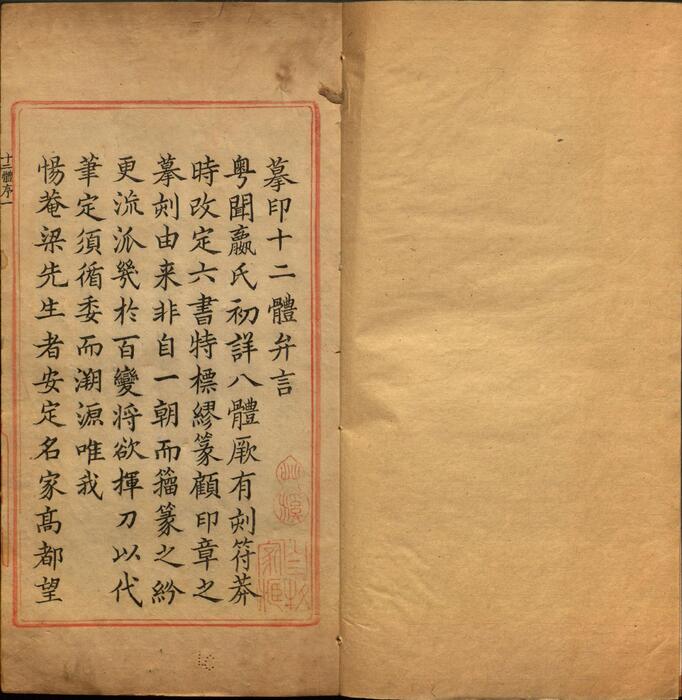 摹印十二體弁言
粵聞嬴氏初詳八體厥有刻符莽
時改定六書特標繆篆顧印章之
摹刻由来非自一朝而籀篆之紛
更流派幾於百變将欲揮刀以代
筆定須循委而溯源唯我
惕菴梁先生者安定名家髙都望
十二體序一